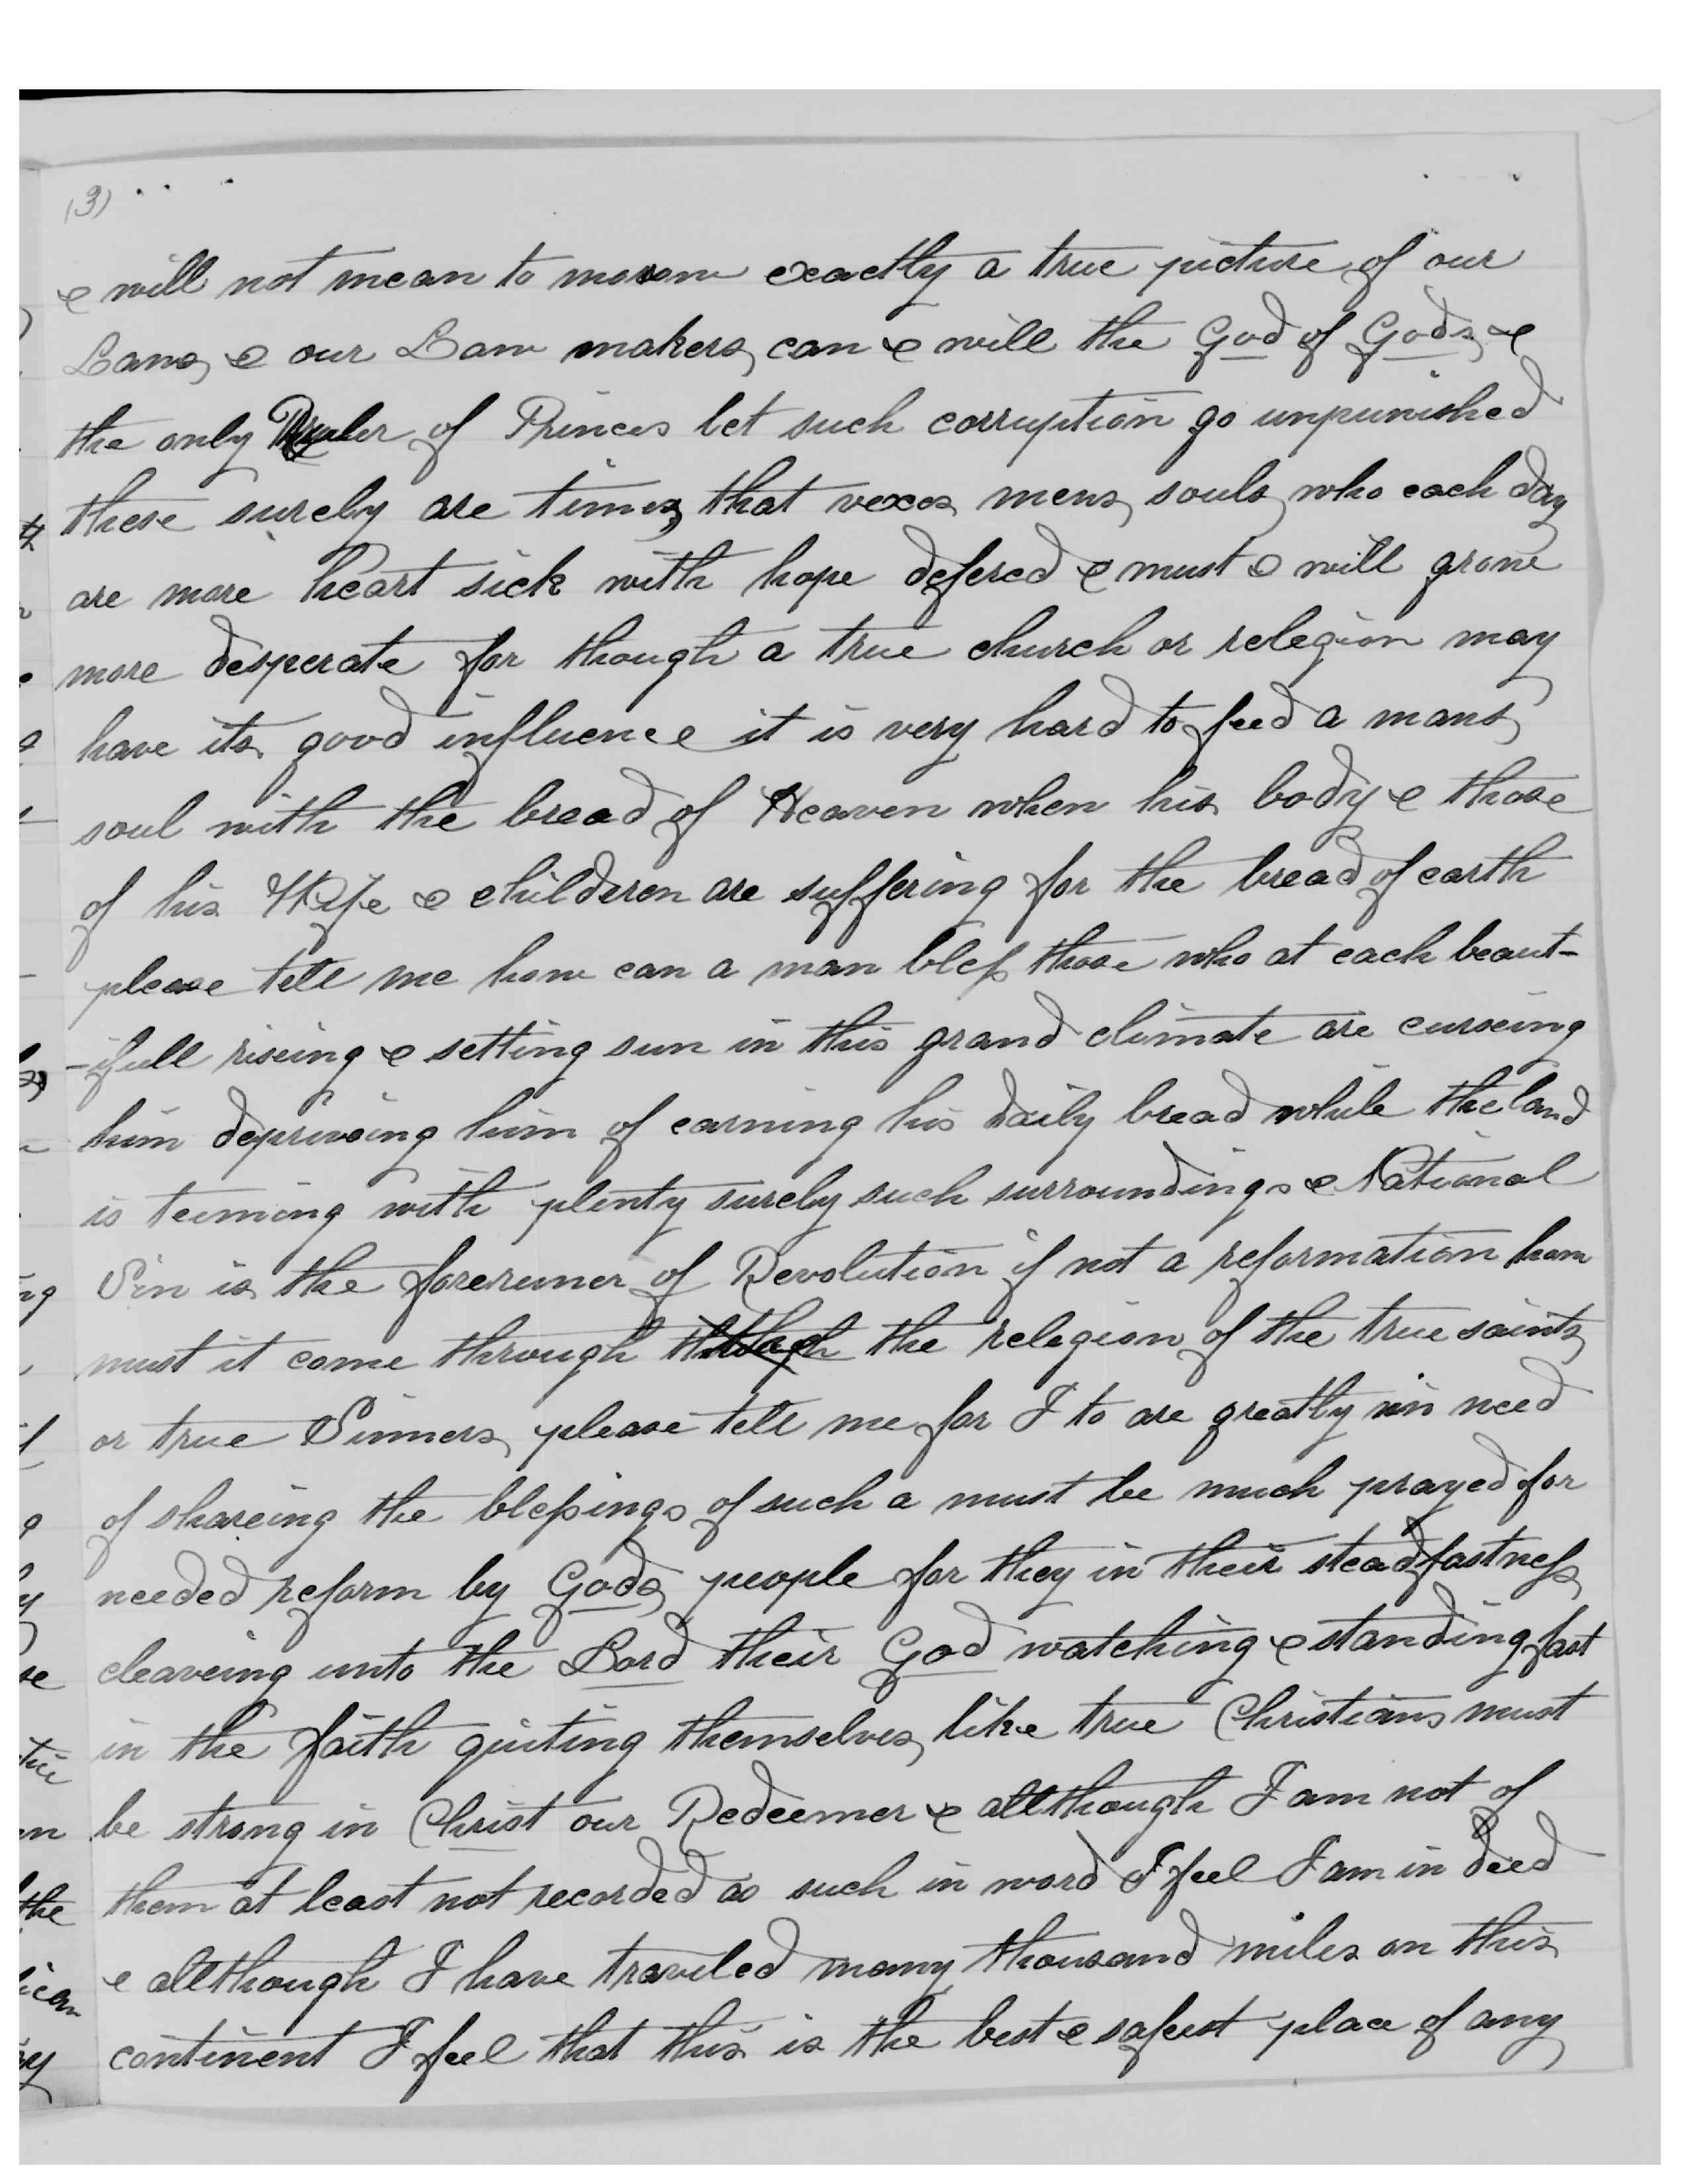 (3)
& will not mean to morrow exactly a true picture of our
Laws, & our Law makers, can & will the God of Gods, &
the only Ruler of Princes let such corruption go unpunished
these surely are times, that vexes mens, souls, who each day
are more heart sick with hope defered & must & will grow
more desperate for though a true church or relegion may
have its good influence it is very hard to feed a mans,
soul with the bread of Heaven when his body & those
of his Wife & childeren are suffering for the bread of earth
please tell me how can a man bless those who at each beaut-
-ifull riseing & setting sun in this grand climate are curseing
him depriveing him of earning his daily bread while the land
is teeming with plenty surely such surroundings & National
Sin is the forerunner of Revolution if not a reformation how
must it come through though the relegion of the true saints,
or true Sinners, please tell me for I to are greatly in need
of shareing the blessings of such a must be much prayed for
needed reform by Gods, people for they in their steadfastness,
cleaveing unto the Lord their God watching & standing fast
in the faith quiting themselves, like true Christians must
be strong in Christ our Redeemer & allthough I am not of
them at least not recorded as such in word I feel I am in deed
& allthough I have traveled many thousand miles on this
continent I feel that this is the best & safeest place of any